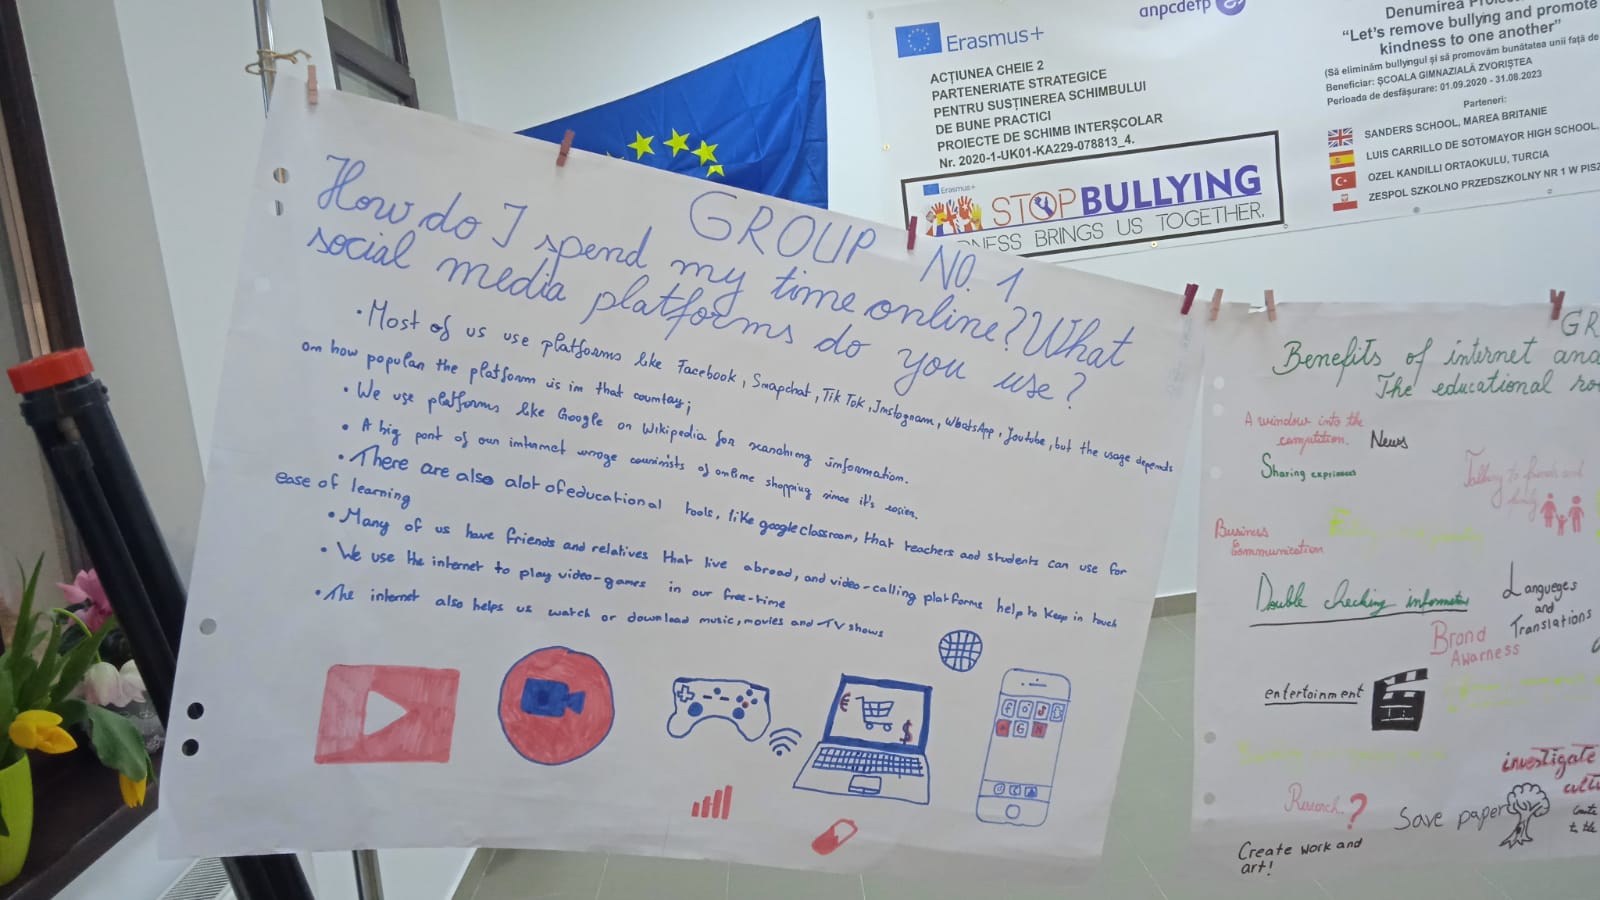 GROUP NO. 1
How do I spend my time online? What
social media platforms do you use?
• Most of us use platforms like Facebook, Snapchat, Tik Tok, Instagram, WhatsApp, Youtube, but the usage depends
on how popular the platform is in that country;
• We use platforms like Google or Wikipedia for searching information.
• A big part of our internet usage consists of online shopping since it's easier.
• There are also alot of educational tools, like google classroom, that teachers and students can use for
ease of learning
• Many of us have friends and relatives that live abroad, and video-calling platforms help to keep in touch
• We use the internet to play video-games in our free-time
• The internet also helps us watch or download music, movies and TV shows
€
$
G
N
Erasmus+
ACȚIUNEA CHEIE 2
PARTENERIATE STRATEGICE
PENTRU SUSȚINEREA SCHIMBULUI
DE BUNE PRACTICI
PROIECTE DE SCHIMB INTERȘCOLAR
Nr. 2020-1-UK01-KA229-078813_4.
Erasmus+
STOP BULLYING
BRINGS US TOGETHER.
anpcdefp
Denumirea
“Let’s remove bullying and promote
kindness to one another”
(Să eliminăm bullyngul și să promovăm bunătatea unii față de
Beneficiar: ȘCOALA GIMNAZIALĂ ZVORIȘTEA
Perioada de desfășurare: 01.09.2020 - 31.08.2023
Parteneri:
SANDERS SCHOOL, MAREA BRITANIE
LUIS CARRILLO DE SOTOMAYOR HIGH SCHOOL,
OZEL KANDILLI ORTAOKULU, TURCIA
ZESPOL SZKOLNO PRZEDSZKOLNY NR 1 W
GR
Benefits of internet and
The educational
A window into the
competition.
News
Sharing
Talking to friends and
family
Business
Communication
Double checking
Langueges
and
Translations
Brand
Awarness
entertainment
investigate
Research?
Save paper
Create work and
art!
to the